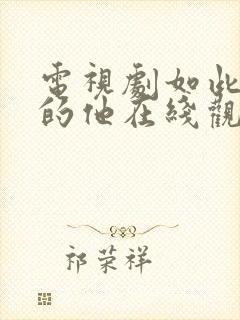 電視劇如此
的他在綫觀
祁荣祥